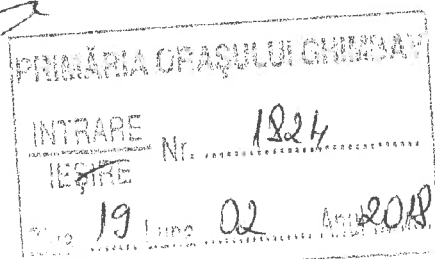 PRIMĂRIA ORAȘULUI GHIMBAV
INTRARE
IEȘIRE
Nr. 1824
Ziua 19 Luna 02 Anul 2018